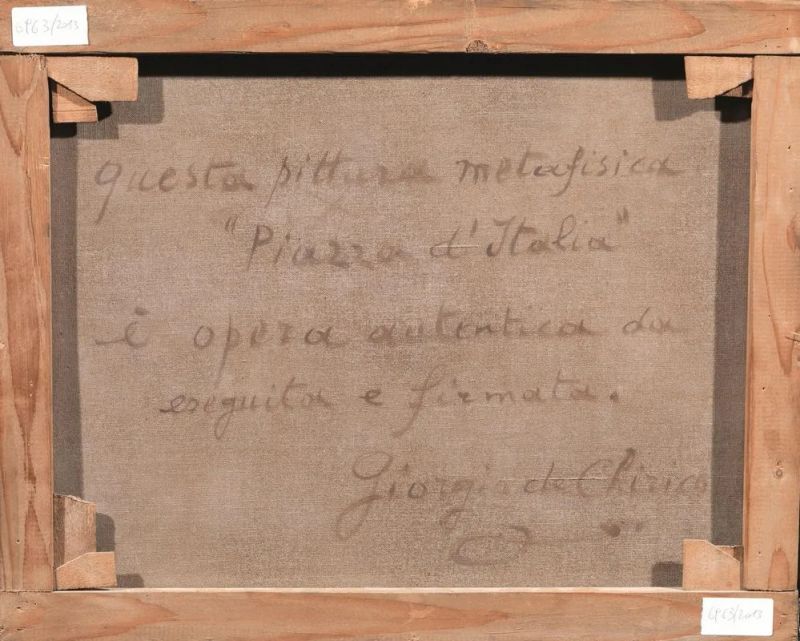 0963/2013
questa pittura metafisica
"Piazza d'Italia"
è opera autentica da
eseguita e firmata.
Giorgio de Chirico
0963/2013